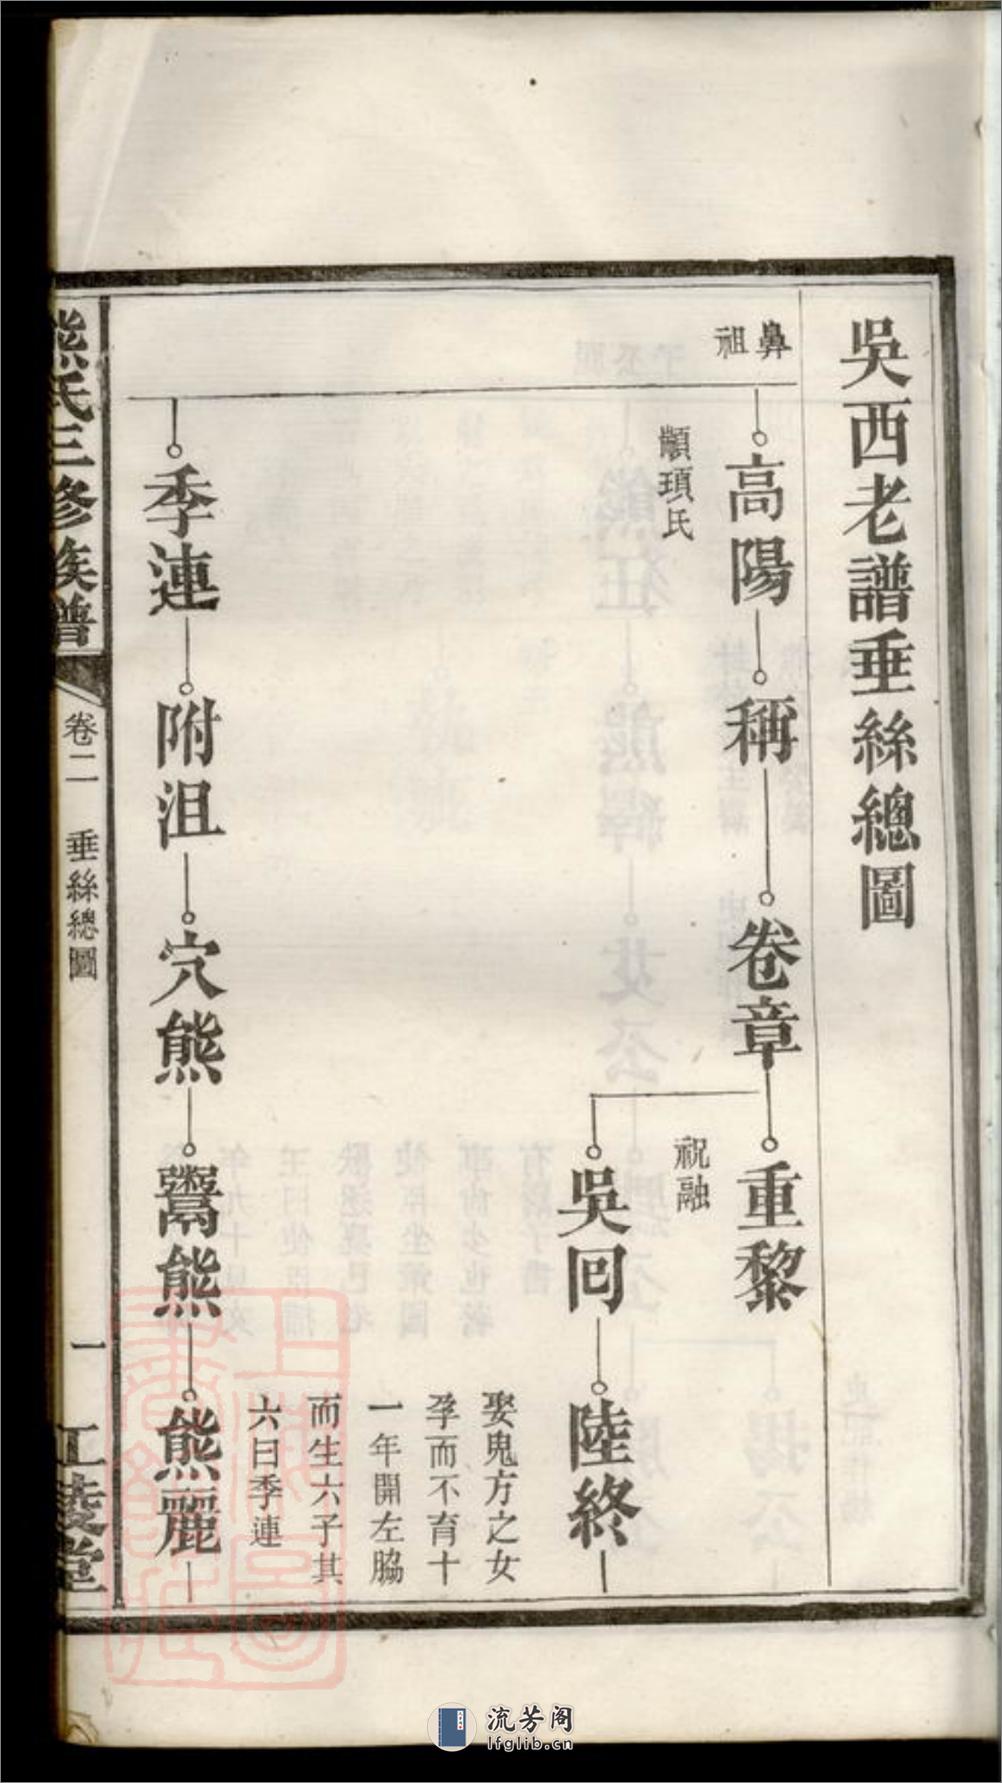 吳西老譜垂絲總圖
鼻祖
高陽
顓頊氏
稱
卷章
重黎
祝融
吳回
陸終
娶鬼方之女
孕而不育十
一年開左脇
而生六子其
六曰季連
季連
附沮
穴熊
鬻熊
熊麗
熊氏三修族譜
卷二
垂絲總圖
一
江陵堂
上海圖書館藏
流芳阁
lfglib.cn